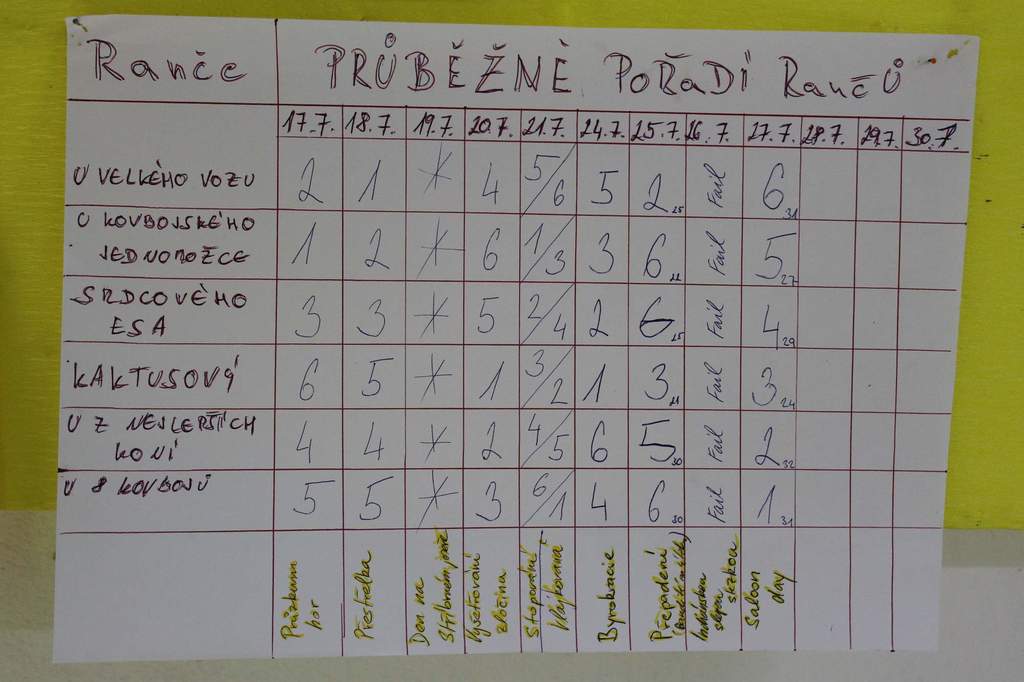 Ranče PRŮBĚŽNÉ POŘADÍ RANČŮ
17.7. 18.7. 19.7. 20.7. 21.7. 24.7. 25.7. 26.7. 27.7. 28.7. 29.7. 30.7.
U VELKÉHO VOZU 2 1 * 4 5/6 5 2 25 Fail 6 31
U KOVBOJSKÉHO
JEDNONOŽCE 1 2 * 6 1/3 3 6 22 Fail 5 27
SRDCOVÉHO
ESA 3 3 * 5 2/4 2 6 25 Fail 4 29
KAKTUSOVÝ 6 5 * 1 3/2 1 3 21 Fail 3 24
U Z NEJLEPŠÍCH
KONÍ 4 4 * 2 4/5 6 5 30 Fail 2 32
U 8 KOVBOJŮ 5 5 * 3 6/1 4 6 30 Fail 1 31
Průzkum
hor
Přestřelka
Den na
Vyšetřování
zločinu
Stopování
Byrokracie
Přepadení
slepou
stezkou
Saloon
day